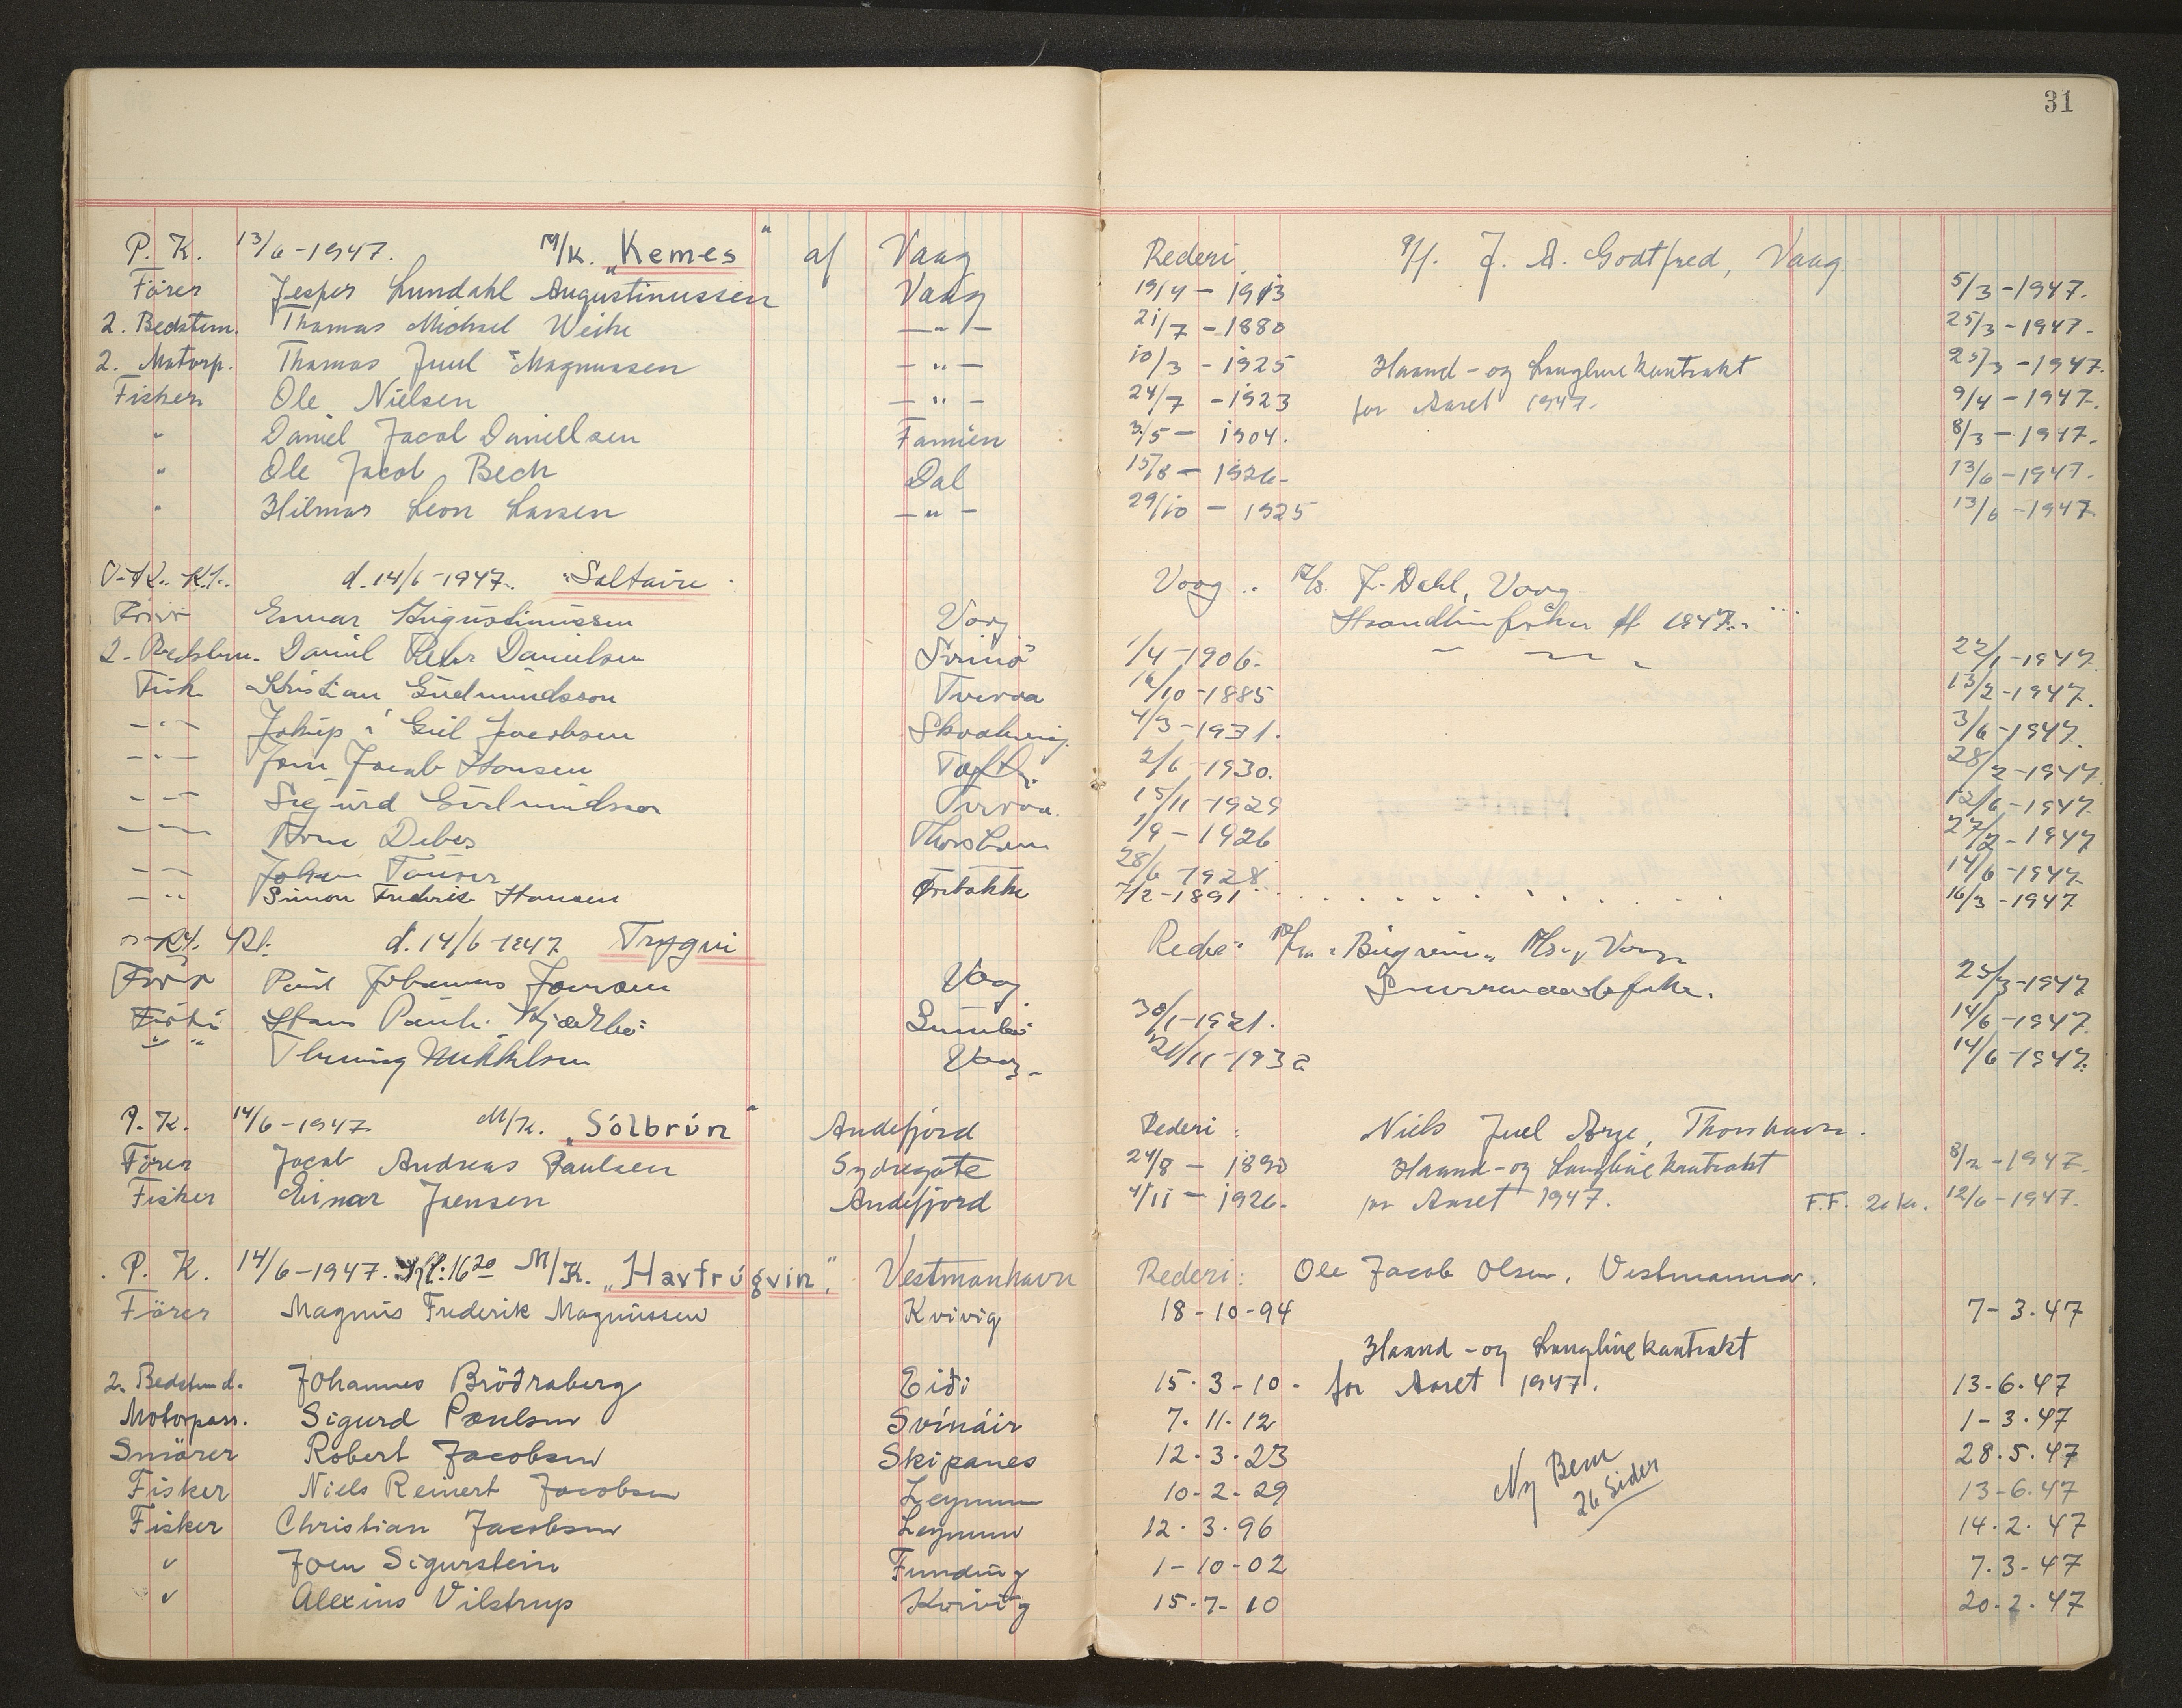 31
P. K. 13/6-1947. M/K. „Kemes" af Vaag Rederi P/f. J. A. Godtfred, Vaag
Förer Jesper Lundahl Augustinussen Vaag 19/4 - 1913 5/3-1947.
2. Bedstem. Thomas Michael Weihe —"— 21/7 -1880 25/3-1947-
2. Motorp. Thomas Juul Magnussen —"— 10/3 - 1925 Haand-og Langlinekontrakt 25/3-1947.
Fisker Ole Nielsen —"— 24/7 -1923 for Aaret 1947. 9/4-1947.
" Daniel Jacob Danielsen Famien 3/5 - 1904. 8/3-1947.
" Ole Jacob Bech Dal 15/8 - 1926- 13/6-1947.
" Hilmar Leon Larsen —"— 29/10 - 1925 13/6-1947
d. 14/6-1947. "Soltaire Vaag J. Dahl, Vaag
Förer Augustinussen Vaag 1947.
2. Bedstem. Daniel Peter Danielsen 1/4-1906. 22/1-1947.
Fisk. Kristian Gudmundsson Tveraa 16/10-1885 13/2-1947.
—"— Jákup í Geil Jacobsen 4/3-1931. 3/6-1947.
—"— Jacob Hansen Tofte. 2/6-1930. 28/2-1947.
—"— Sigurd Gudmundsson Tveraa. 15/11-1929 12/6-1947.
—"— Arne Debes Thorshavn 1/9-1926 27/2-1947
—"— Johan 28/6 1928 14/6-1947-
—"— Simon Frederik Hansen 7/2-1891 16/3-1947
d. 14/6-1947 Tryggvi Rederi Vaag
Förer Poul Johannes Joensen Vaag 25/3-1947
Fisker Hans Pauli Kjærbo Sumbö 30/1-1921. 14/6-1947.
" " Flemming Mikkelsen Vaag- 21/11-1932 14/6-1947.
P. K. 14/6-1947 M/K. „Sólbrún" Andefjord Rederi: Niels Juel Arge, Thorshavn.
Förer Jacob Andreas Paulsen Sydregøte 24/8 - 1890 Haand-og Langlinekontrakt 8/2-1947.
Fisker Einar Joensen Andefjord 4/11 - 1926- for Aaret 1947. F.F. 20 kr. 12/6-1947.
P. K. 14/6-1947. kl: 16 20 M/K. „Havfrúgvin" Vestmanhavn Rederi: Ole Jacob Olsen, Vestmanna.
Förer Magnus Frederik Magnussen Kvivig 18-10-94 7-3.47
Haand-og Langlinekontrakt
2. Bedstemd. Johannes Bröðraberg Eiði 15.3-10- for Aaret 1947. 13-6.47
Motorpass. Sigurd Poulsen Svínáir 7.11.12 1-3.47
Smörer Robert Jacobsen Skipanes 12.3.23 28.5.47
Fisker Niels Reinert Jacobsen Leynum 10-2-29 Ny Bem 13-6.47
Fisker Christian Jacobsen Leynum 12.3.96 26 Sider 14.2.47
" Joen Sigurstein Funding 1-10-02 7.3-47
" Alexius Vilstrup Kvivig 15.7-10 20.2.47